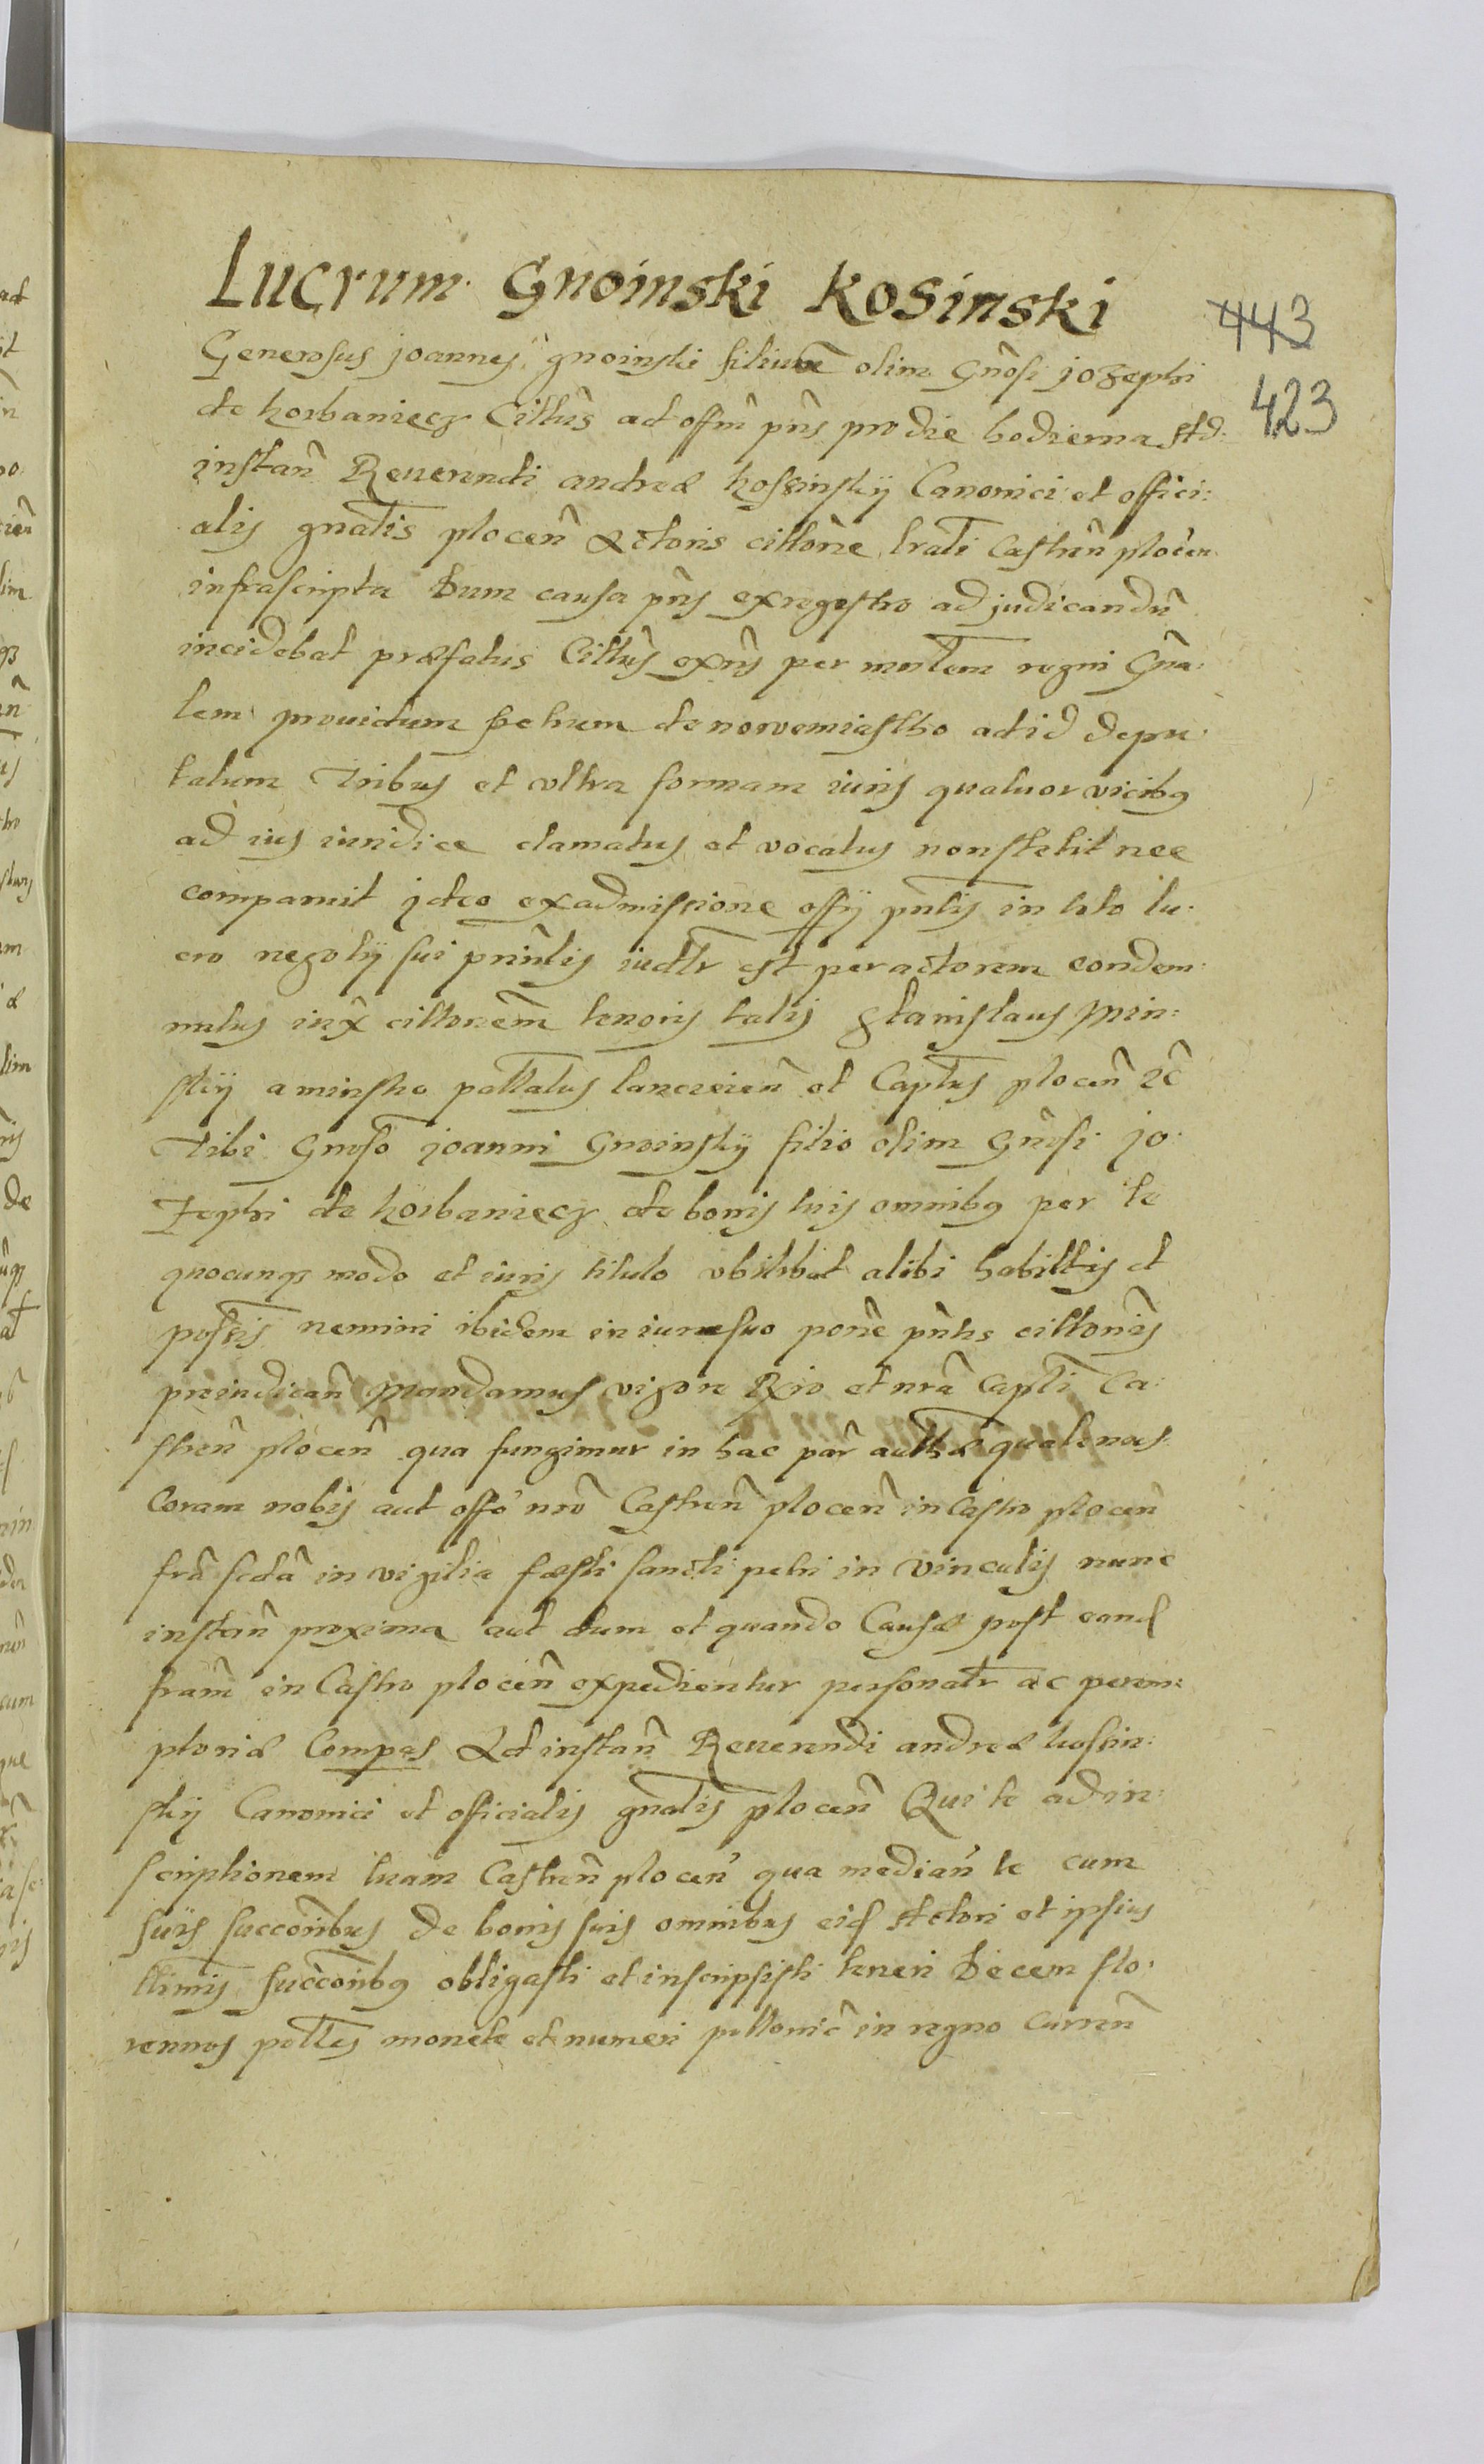 Lucrum Gnoinski Kosinski
443
423
Generosus joannes gnoinski filium olim Gnosi jozephi
de horbaniecz Cittus ad offm pns pro die hodierna Ad
instan Reuerendi andreæ kossinskij Canonici et offici:
alis gnalis plocen Actoris cittone lrali Castren plocen
infrascripta Dum causa pns ex registro ad judicandu
incidebat præfatus Cittus exns per mrlem regni Gna:
lem prouidum petrum de nowemiastho ad id depu:
tatum Tribus et vltra formam iuris quatuor vicibq
ad ius iuridice clamatus et vocatus non stetit nec
comparuit jdeo ex admissione offij pntis in toto lu:
cro negotij sui prinlis iudlr est per actorem condem:
natus iux cittonem tenoris talis Stanislaus Min:
skij a minsko pallatus lancicien et Captus plocen zc
Tibi Gnoso joanni Gnoinskij filio olim Gnosi jo:
zephi de horbaniecz de bonis tuis omnibq per te
quocunqz modo et iuris titulo vbilibet alibi habittis et
possis nemini ibidem in iure suo pone pntis cittonis
preiudican Mandamus vigore Rgio et nra Capli Ca:
stren plocen qua fungimur in hac par auttæ quatenus
Coram nobis aut offo nro Castren plocen in Castro plocen
fra scda in vigilia fæsti sancti petri in vinculis nunc
instan proxima aut dum et quando Causæ post eand
fram in Castro plocen expedientur personalr ac perem:
ptoriæ Compas Ad instan Reuerendi andreæ kossin:
skij Canonici et officialis gnalis plocen Qui te ad in:
scriptionem tuam Castren plocen qua median te cum
suis succoribus de bonis suis omnibus eid Actori et ipsius
ltimis succoribq obligasti et inscripsisti teneri Decem flo:
renos polles monete et numeri pollonic in regno curren